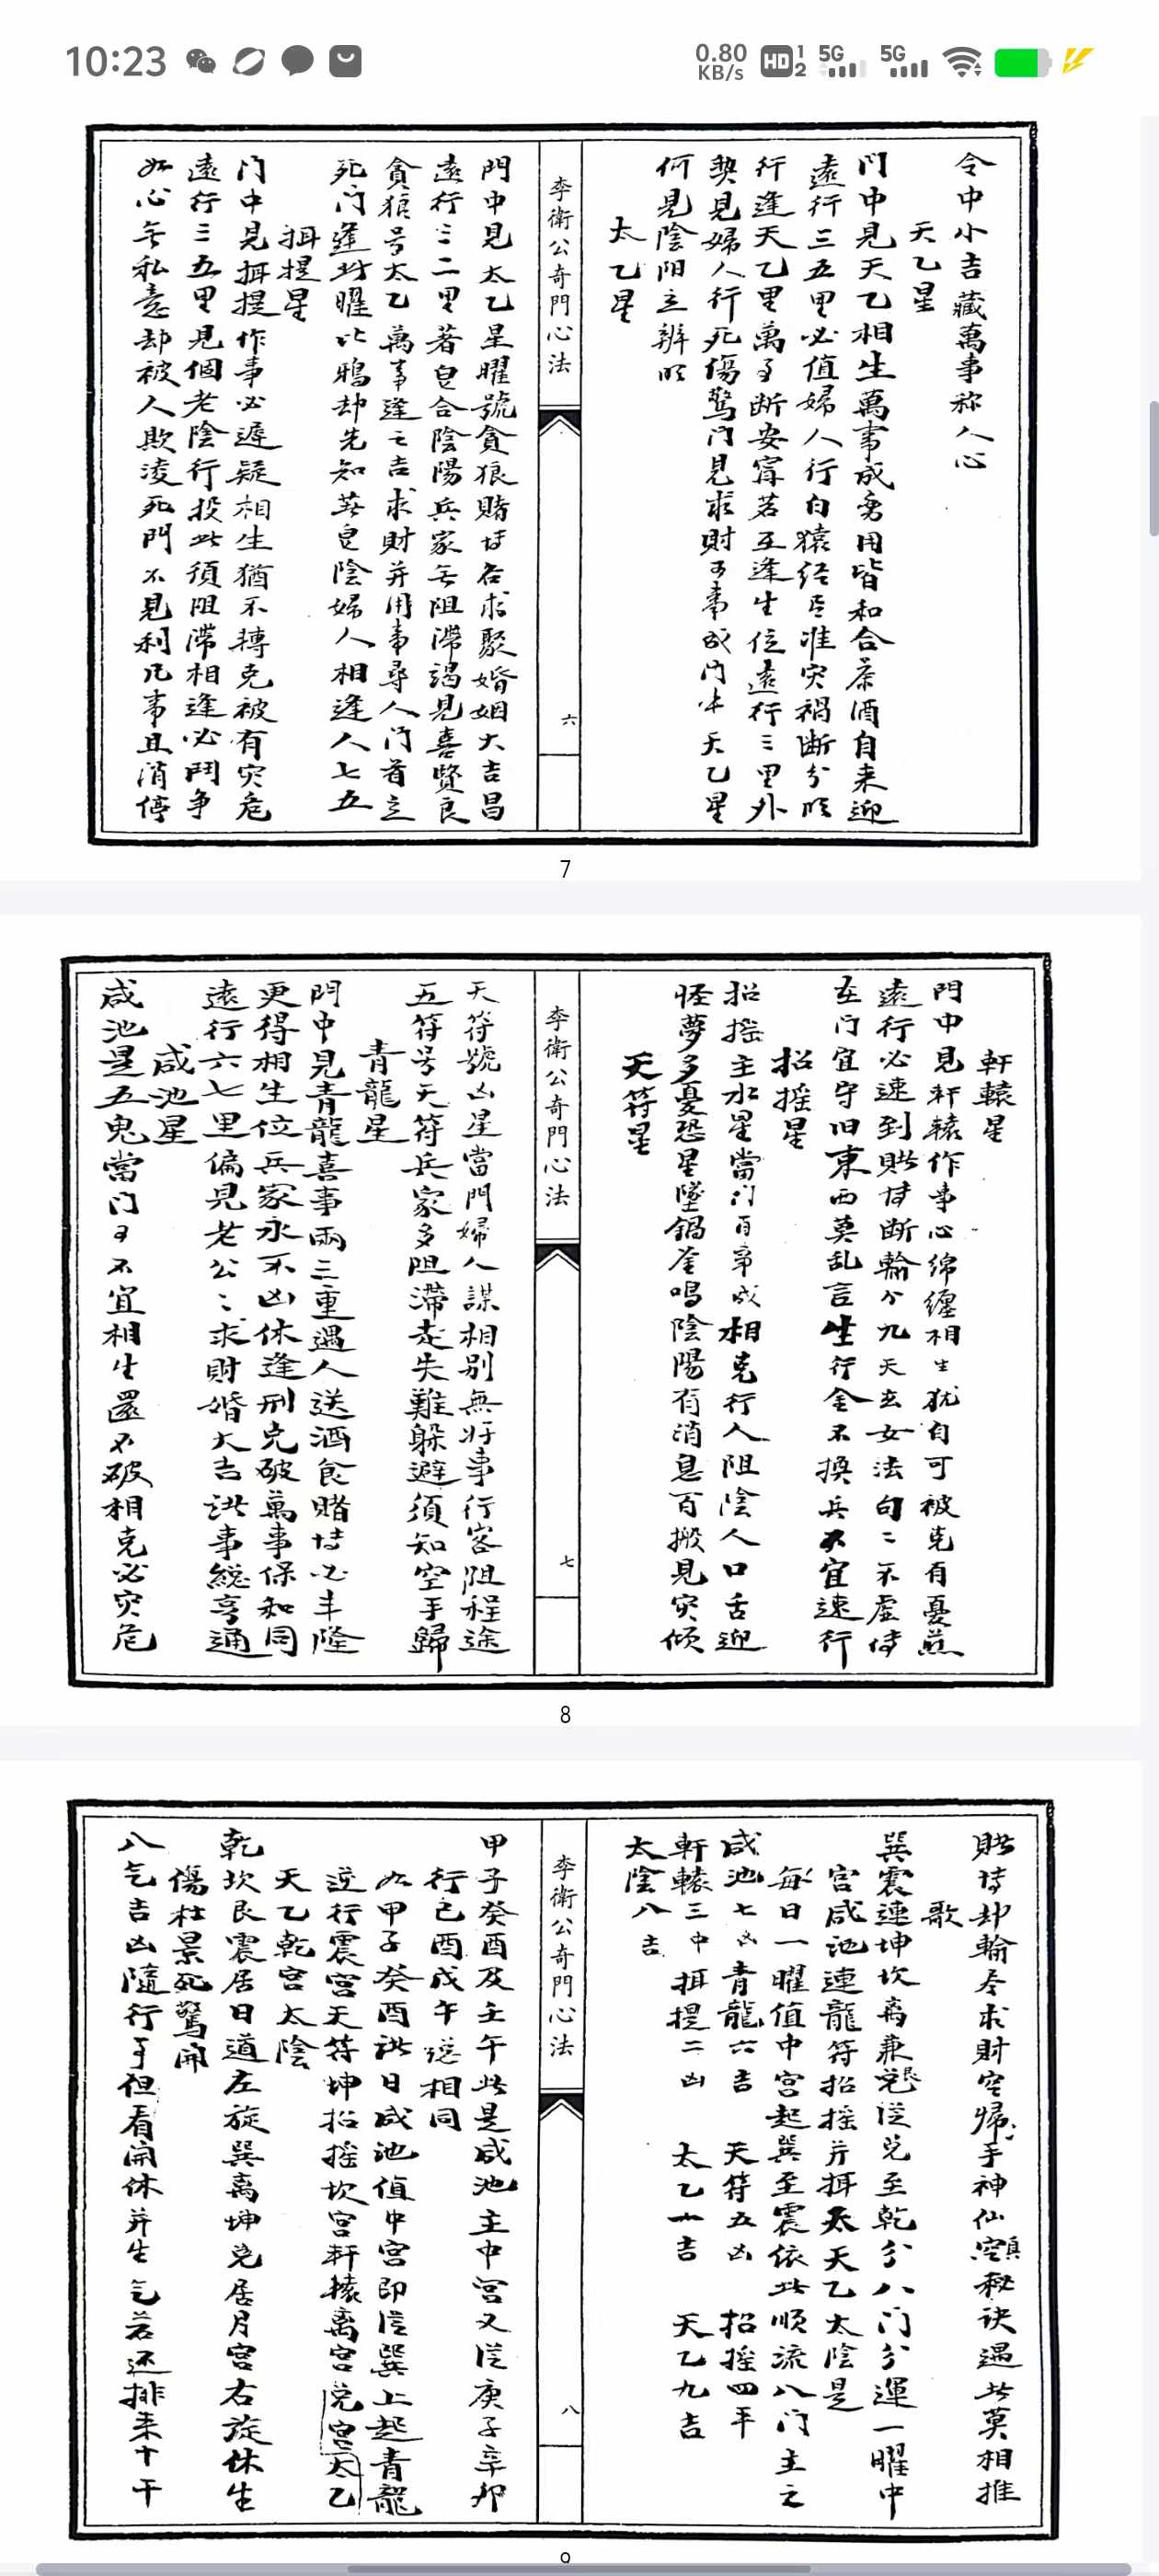 10:23
0.80 KB/s
HD 1 2
5G
5G
令中小吉藏萬事称人心
天乙星
門中見天乙相生萬事成勇用皆和合茶酒自来迎
遠行三五里必值婦人行白猿经
准灾禍断分明
行逢天乙里萬
断安寧若互逢生位遠行三里外
見婦人行死傷驚门見求財
事成门中天乙星
何見陰阳立辨明
太乙星
李衛公奇門心法
六
門中見太乙星曜號貪狼賭
求聚婚姻大吉昌
遠行三二里著皂合陰陽兵家无阻滞謁見喜賢良
貪狼号太乙萬事逢之吉求財并用事尋人门首立
死门逢
曜
鴉却先知
皂陰婦人相逢人七五
挕提星
门中見挕提作事必遲疑相生猶不摶克被有灾危
遠行三五里見個老陰行投此須阻滞相逢必鬥争
如心无私意却被人欺凌死門不見利凡事且消停
7
軒轅星
門中見軒轅作事心綿缠相生犹自可被克有憂煎
遠行必速到
断輸个九天玄女法句〻不虚
在门宜守旧東西莫乱言坐行金不换兵不宜速行
招摇星
招摇主水星當门百事成相克行人阻陰人口舌迎
怪夢多憂恐星墜鍋釜鳴陰陽有消息百搬見灾倾
天符星
李衛公奇門心法
七
天符號凶星當門婦人謀相别無好事行客阻程途
五符号天符兵家多阻滞走失難躲避須知空手歸
青龍星
門中見青龍喜事兩三重遇人送酒食賭
必丰隆
更得相生位兵家永不凶休逢刑克破萬事保和同
遠行六七里偏見老公〻求財婚大吉
事総亨通
咸池星
咸池是五鬼當门
不宜相生還不破相克必灾危
8
却輸尽求財空歸手神仙真
秘诀遇此莫相推
歌
巽震連坤坎离兼艮
從兑至乾分八门分運一曜中
宫咸池連龍符招摇并挕太天乙太陰是
每日一曜值中宫起巽至震依此顺流八门主之
咸池七凶 青龍六吉 天符五凶 招摇四平
軒轅三中 挕提二凶 太乙一吉 天乙九吉
太陰八吉
李衛公奇門心法
八
甲子癸酉及壬午此是咸池主中宫又從庚子辛卯
行己酉戊午
相同
如甲子癸酉
日咸池值中宫即從巽上起青龍
逆行震宫天符坤招摇坎宫軒轅离宫兑宫太乙
天乙乾宫太陰
乾坎艮震居日道左旋巽离坤兑居月宫右旋休生
傷杜景死驚開
八气吉凶隨行
但看開休并生气若还排来十干
9